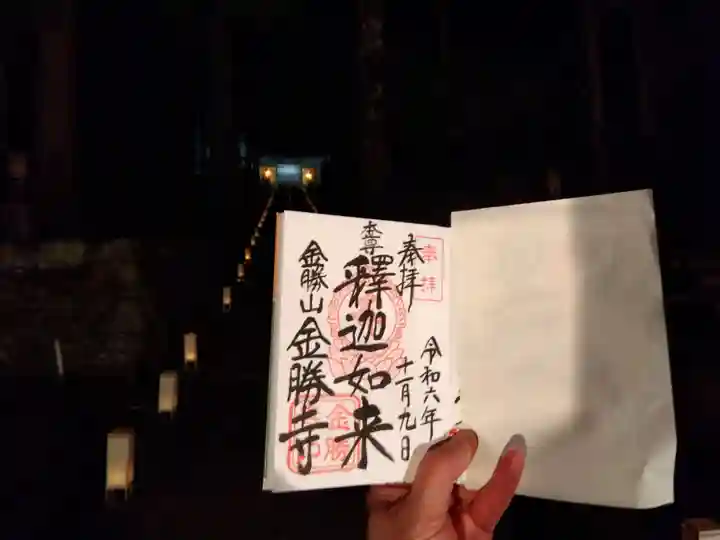 奉拝
奉拝
令和六年
十一月九日
本尊
釋迦如来
金勝山
金勝寺
金勝